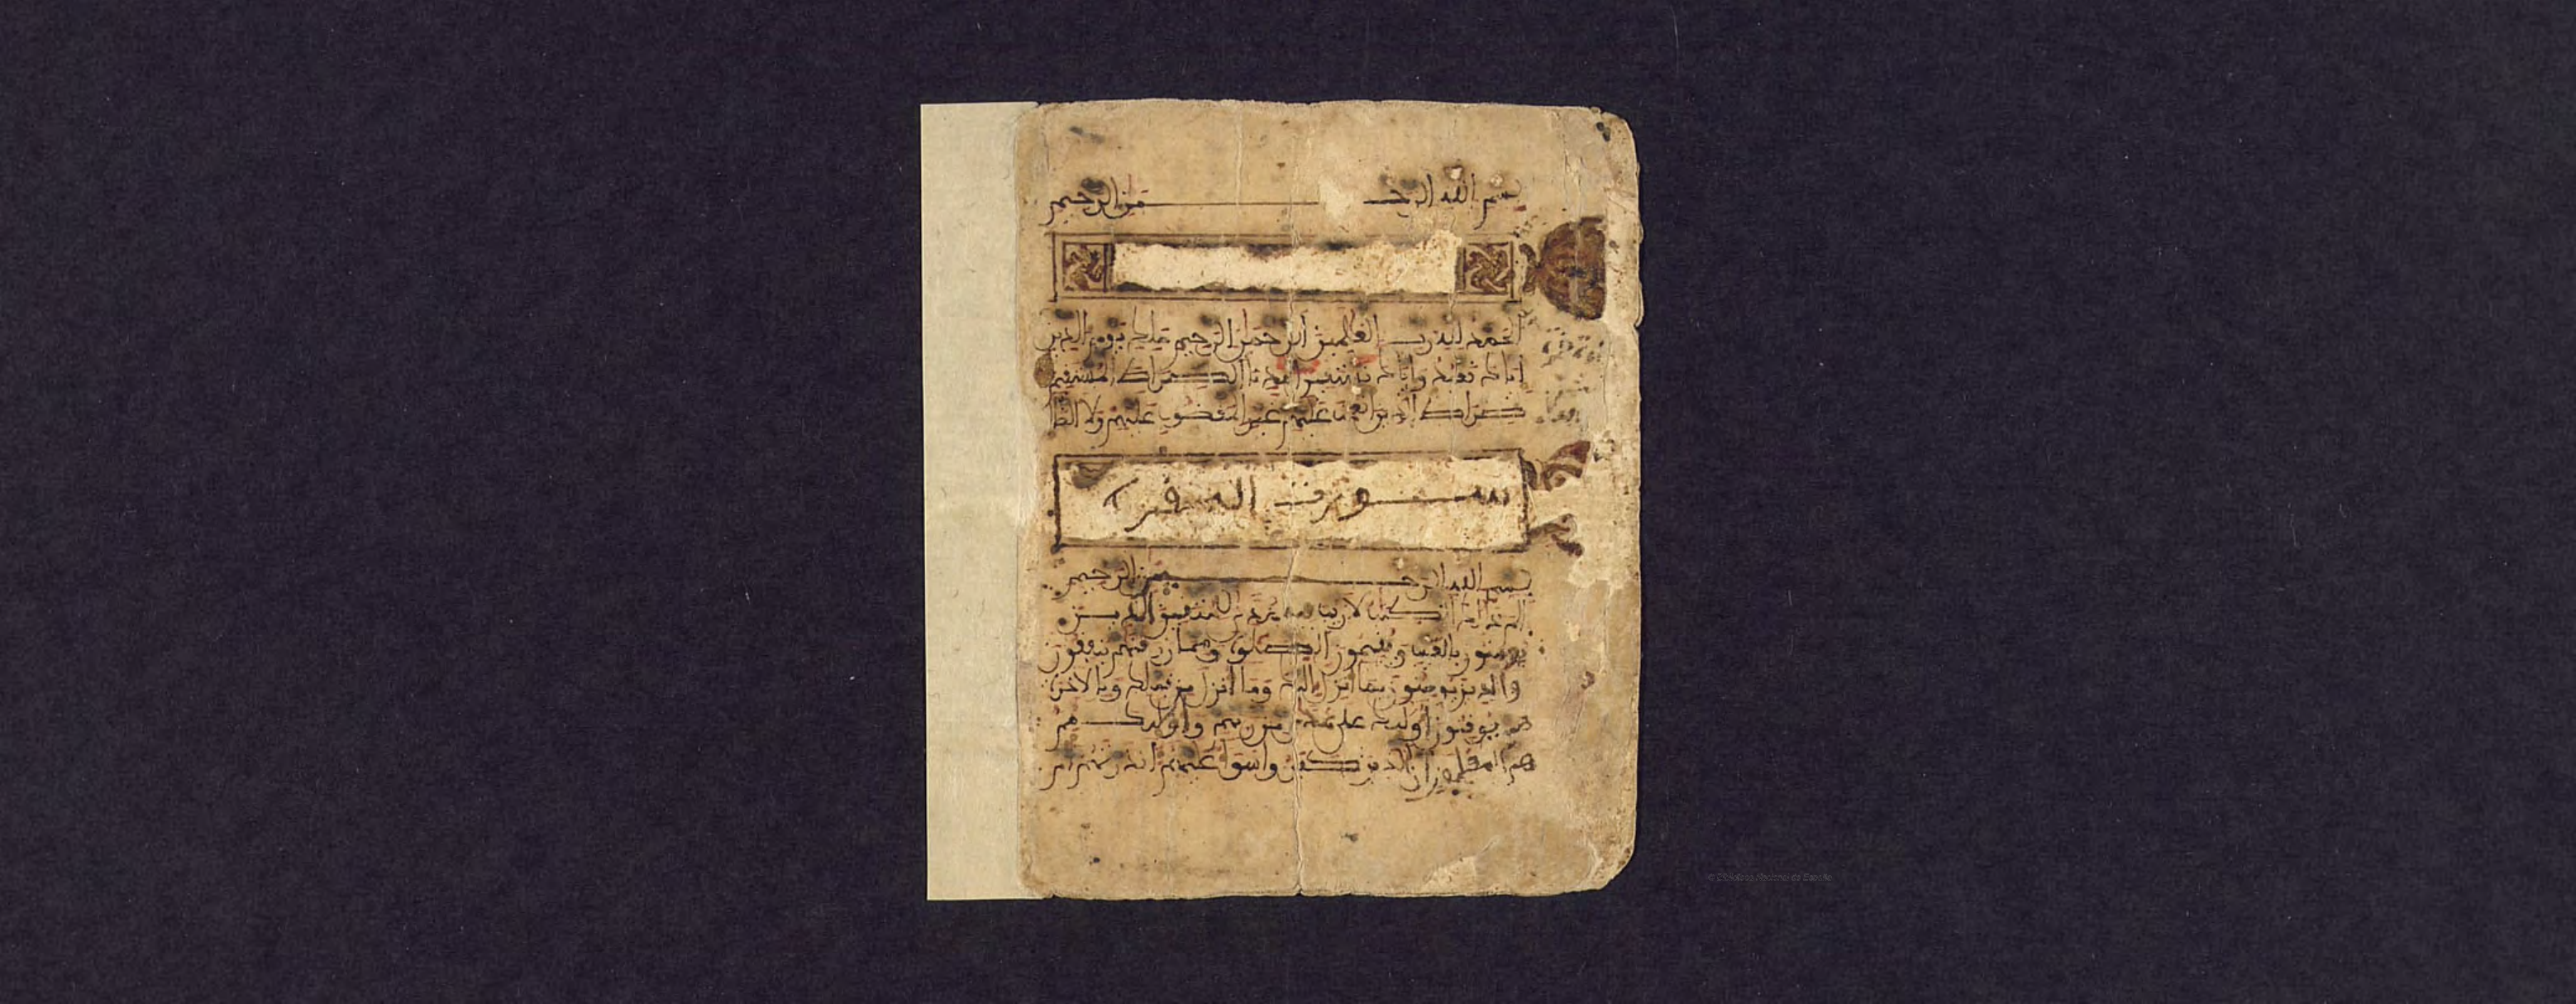 بسم الله الرحمن الرحيم
الحمد لله رب العلمين الرحمن الرحيم ملك يوم الدين
اياك نعبد واياك نستعين اهدنا الصراط المستقيم
صراط الذين انعمت عليهم غير المغضوب عليهم ولا الضا
ســورت البقرة
بسم الله الرحمن الرحيم
الم ذلك الكتب لا ريب فيه هدى للمتقين الذين
يومنون بالغيب ويقيمون الصلوة ومما رزقنهم ينفقون
والذين يومنون بما انزل اليك وما انزل من قبلك وبالاخرة
هم يوقنون اولئك على هدى من ربهم واولئك هم
هم المفلحون ان الذين كفروا سوا عليهم انذرتهم ام
© Biblioteca Nacional de España